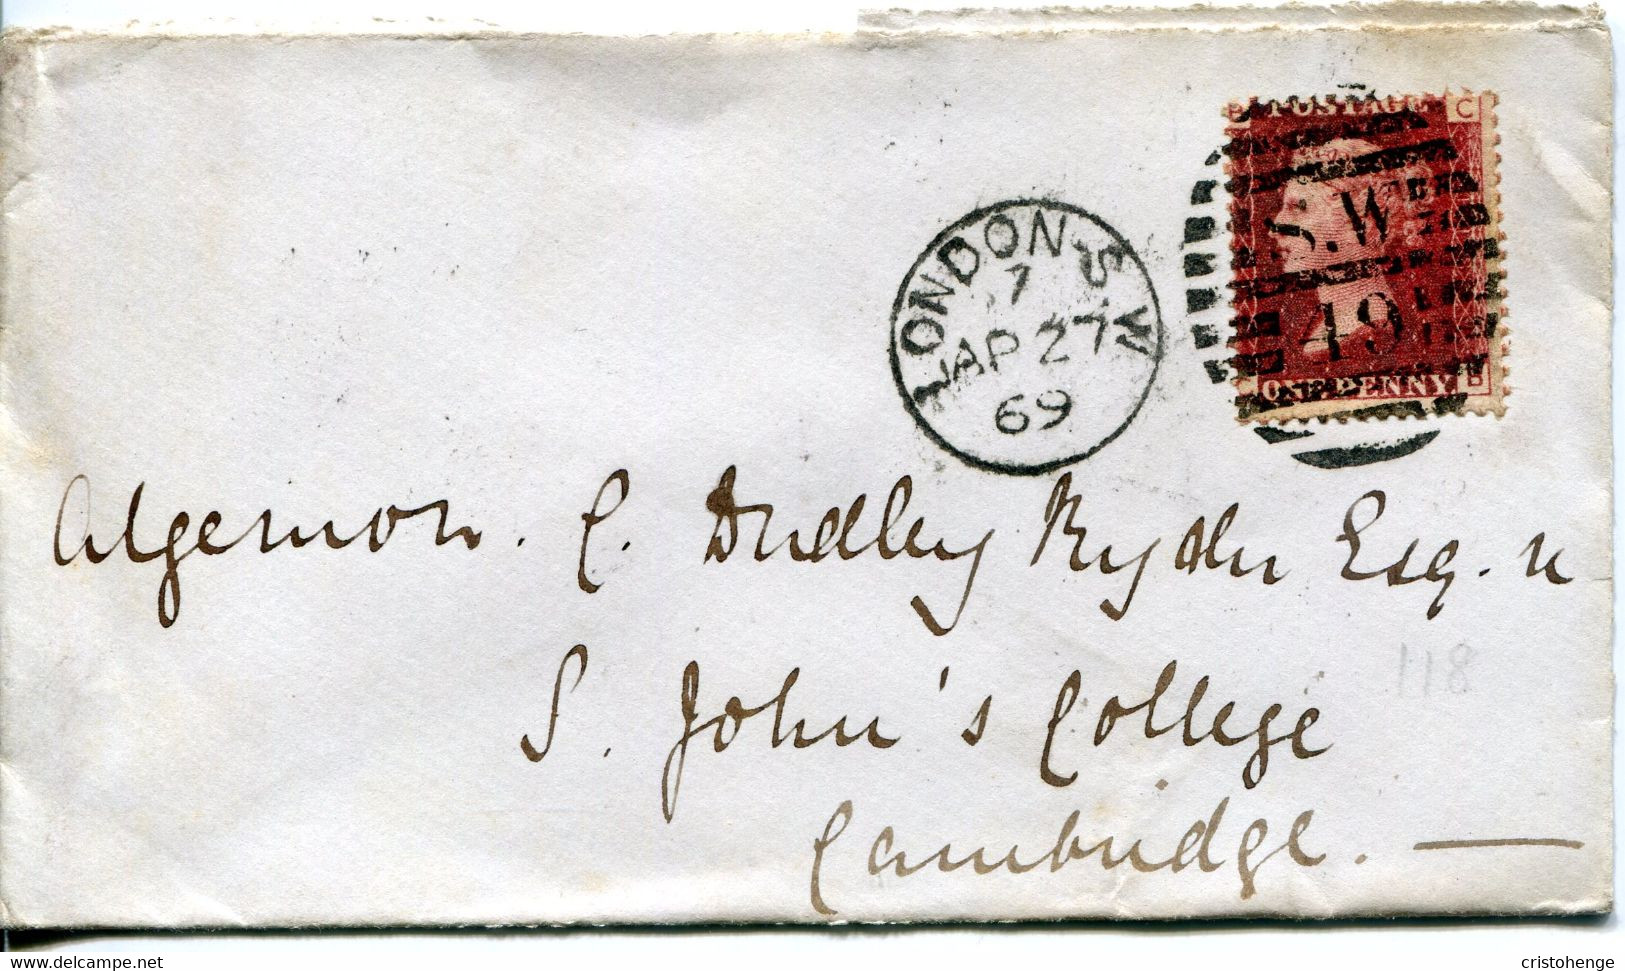 POSTAGE C
LONDON. S.W
7
AP 27
69
S.W
49
ONE PENNY. B
Algernon. C. Dudley Ryder Esq.
S. John's College
Cambridge.
118
www.delcampe.net
cristohenge